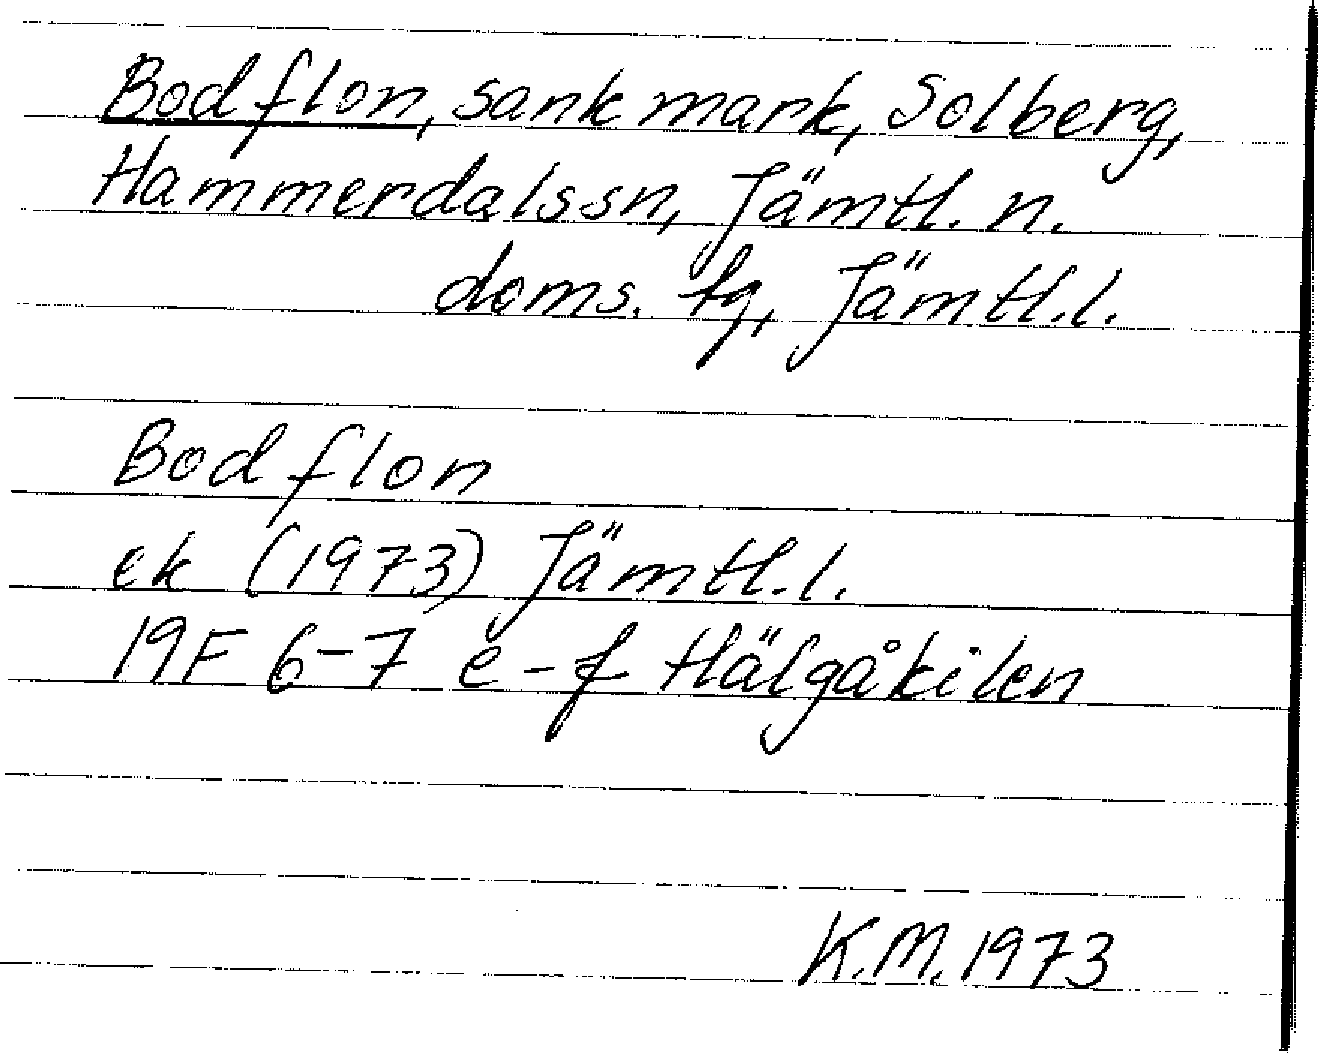 Bodflon, sank mark, Solberg,
Hammerdalssn, Jämtl. n.
doms. fg, Jämtl.l.
Bodflon
ek (1973) Jämtl.l.
19F 6-7 e-f Hälgåkilen
K.M. 1973